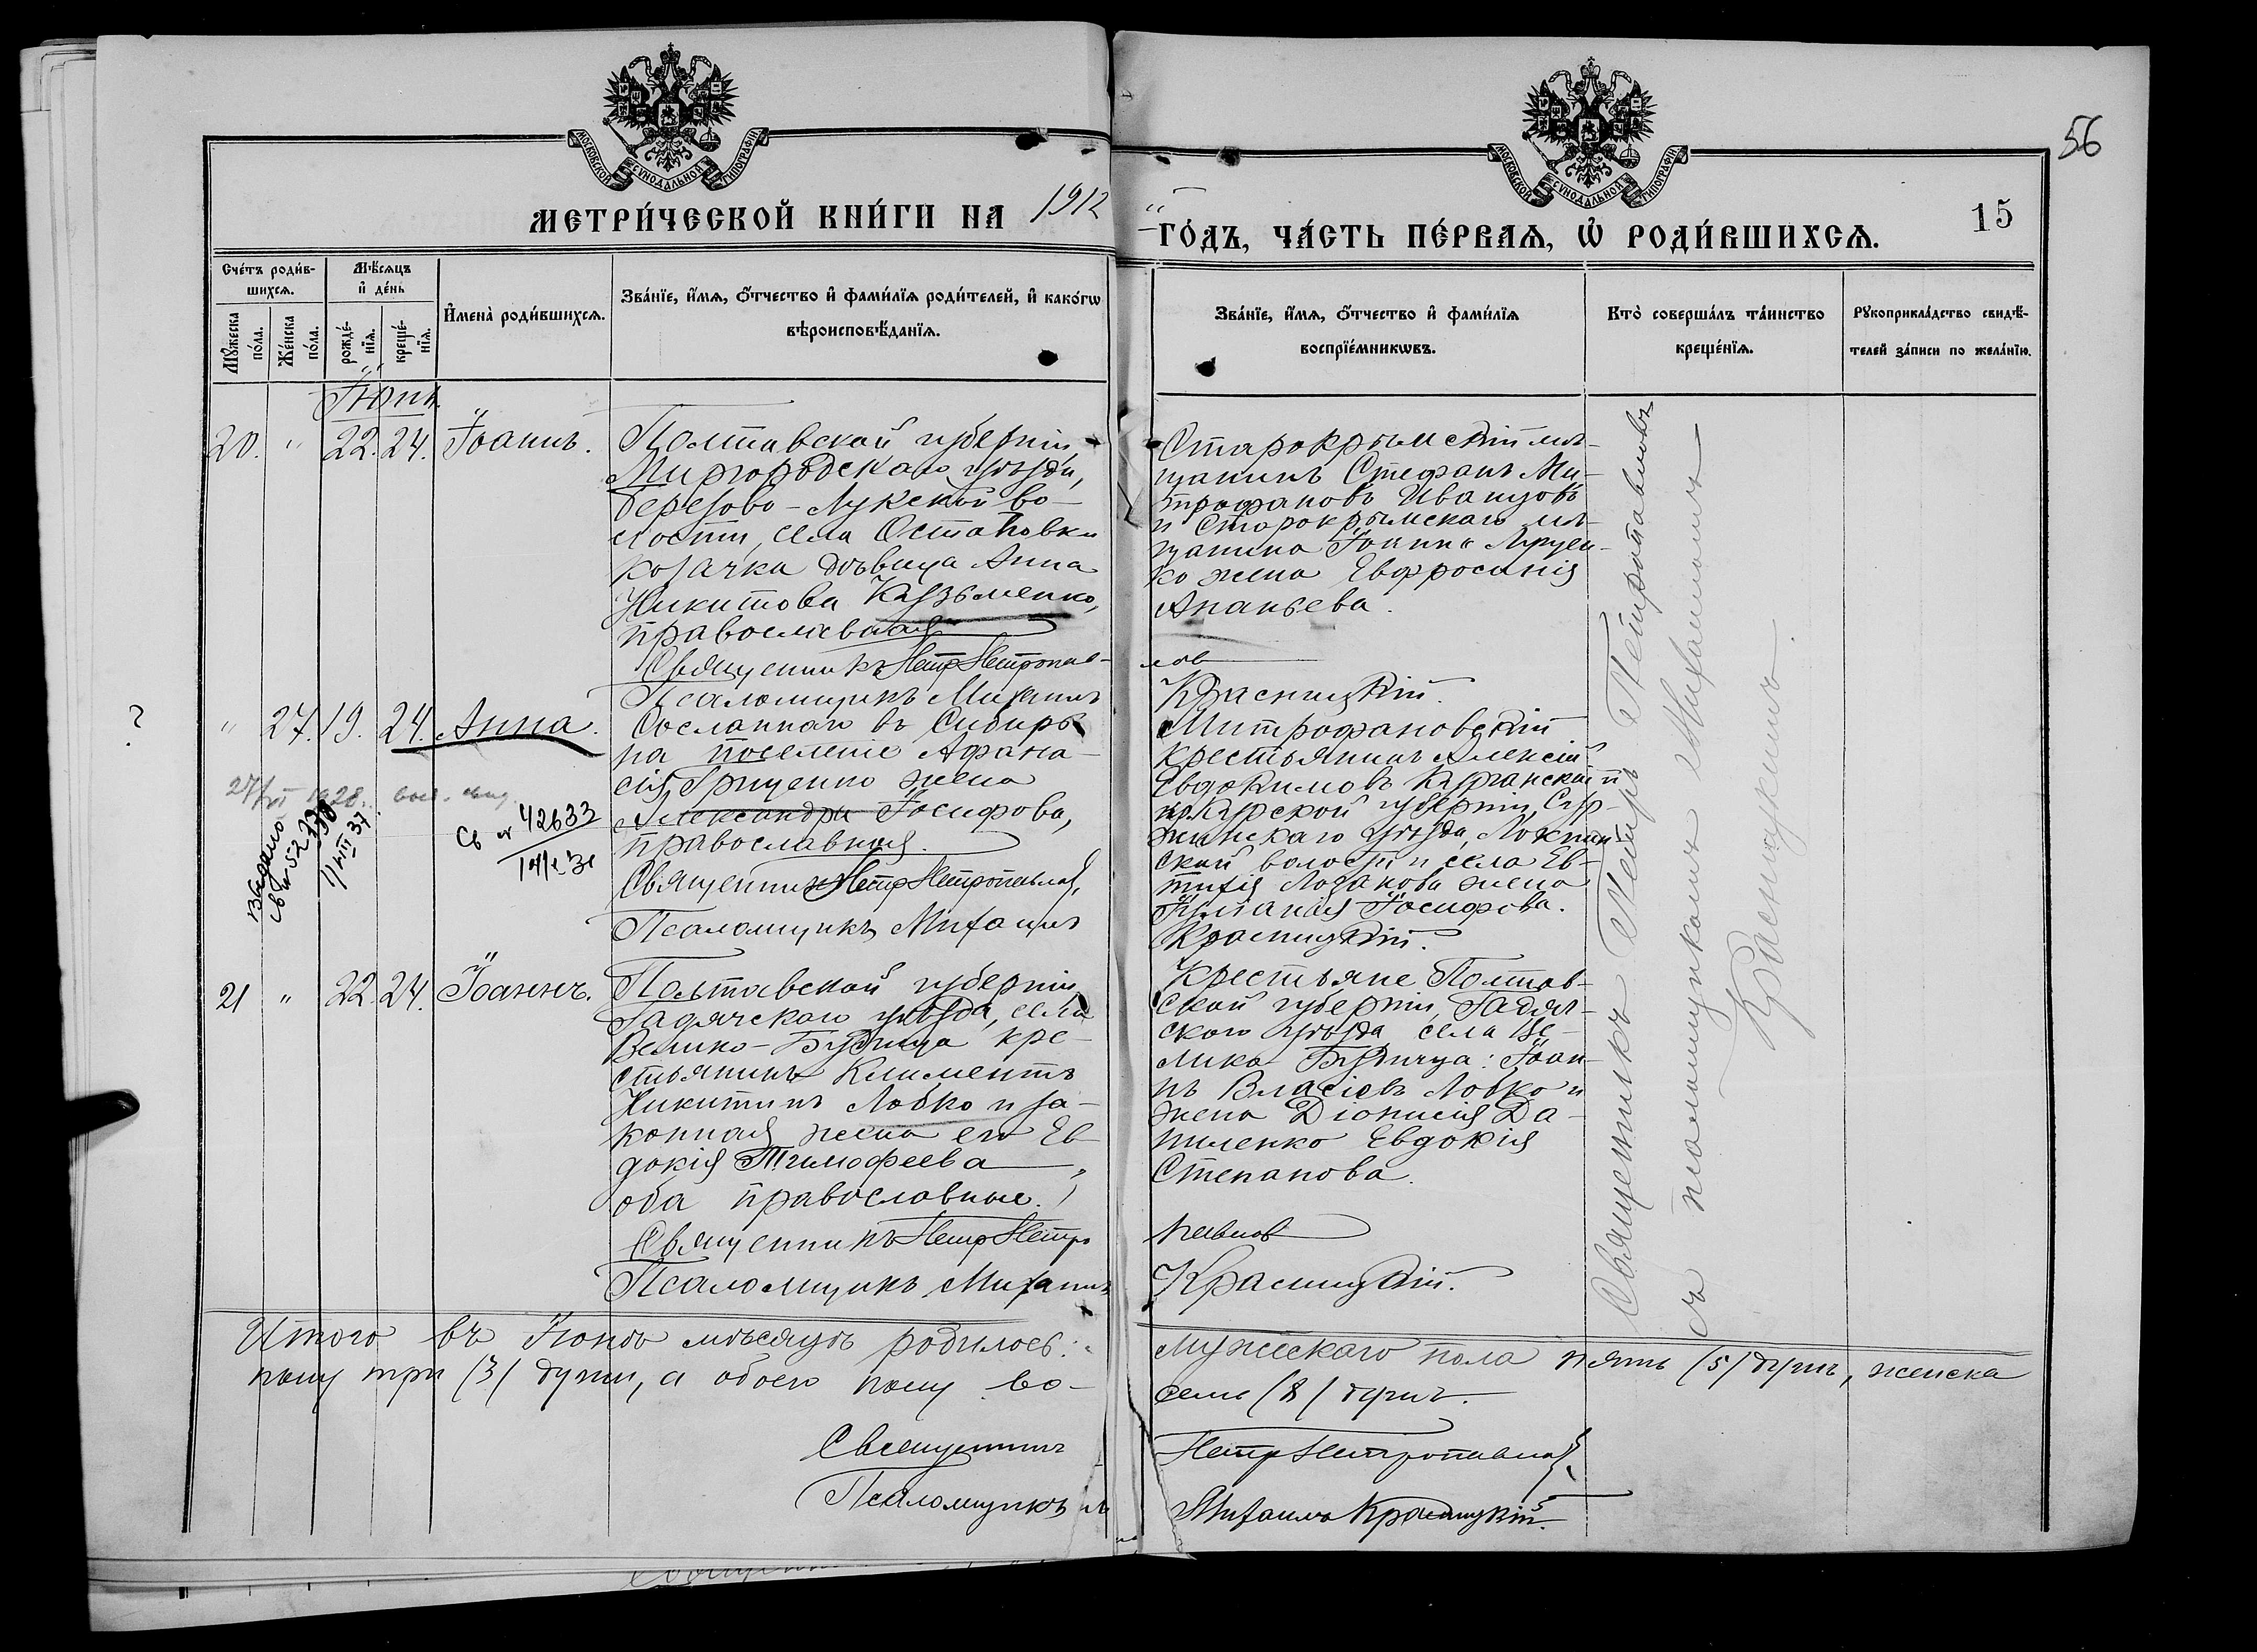 56
МОСКОВСКОЙ СУНОДАЛЬНОЙ ТИПОГРАФІИ
МОСКОВСКОЙ СУНОДАЛЬНОЙ ТИПОГРАФІИ
МЕТРИ́ЧЕСКОЙ КНИ́ГИ НА 1912
ГО́ДЪ, ЧА́СТЬ ПЕ́РВАѦ, Ѡ РОДИ́ВШИХСѦ.
15
Сче́тъ роди́в-
шихсѧ.
Мꙋ́жеска по́ла.
Же́нска по́ла.
Мѣ́сѧцъ
и҆ де́нь
рожде́-
нїѧ.
креще́-
нїѧ.
И҆мена̀ роди́вшихсѧ.
Зва́нїе, и҆́мѧ, ѻ҆́тчество и҆ фами́лїѧ роди́телей, и҆ како́гѡ
вѣроисповѣ́данїѧ.
Зва́нїе, и҆́мѧ, ѻ҆́тчество и҆ фами́лїѧ
воспрїе́мникѡвъ.
Кто̀ соверша́лъ та́инство
креще́нїѧ.
Рꙋкоприкла́дство свидѣ́-
телей за́писи по жела́нїю.
Іюнь
20. " 22. 24. Іоаннъ.
Полтавской губерніи,
Миргородскаго уѣзда,
Березово-Лукской во-
лости, села Остаповки
козачка дѣвица Анна
Никитова Кузьменко,
православная
Священникъ Петр Петропав-
Псаломщикъ Михаилъ
Старокрымскій мѣ-
щанинъ Стефанъ Ми-
трофановъ Иванцовъ
и Старокрымскаго мѣ-
щанина Іоанна
ко жена Евфросинія
Ананьева.
лов
Красницкій.
? " 27. 19. 24. Анна.
Сосланнаго въ Сибирь
на поселеніе Афана-
сія Гриценко жена
Александра Іосифова,
православная.
Священникъ Петр Петропавлов,
Псаломщикъ Михаилъ
Митрофановскій
крестьянинъ Алексій
Евдокимовъ Курганской и
Курской губерніи,
уѣзда,
ской волости села Ев-
жена
Іосифова.
Красницкій.
1928.
Выдано
Св № 42633
21 " 22. 24. Іоаннъ.
Полтавской губерніи,
Гадячскаго уѣзда, села
Велико-Будища кре-
стьянинъ Климентъ
Никитинъ Лобко и за-
конная жена его Ев-
докія Тимофеева,
оба православные.
Священникъ Петр Петро
Псаломщикъ Михаилъ
Крестьяне Полтав-
ской губерніи, Гадяч-
скаго уѣзда села Ве-
лика Будища: Іоан-
нъ Власіевъ Лобко и
жена Діонисія Да-
ниленко Евдокія
Степанова.
павлов
Красницкій.
Священникъ Петръ Петропавловъ
съ псаломщикомъ Михаиломъ
Красницкимъ.
Итого въ Іюнѣ мѣсяцѣ родилось:
мужескаго пола пять (5) душъ, женска
полу три (3) души, а обоего полу во-
семь (8) душъ.
Священникъ
Петр Петропавлов
Псаломщикъ
Михаилъ Красницкій.